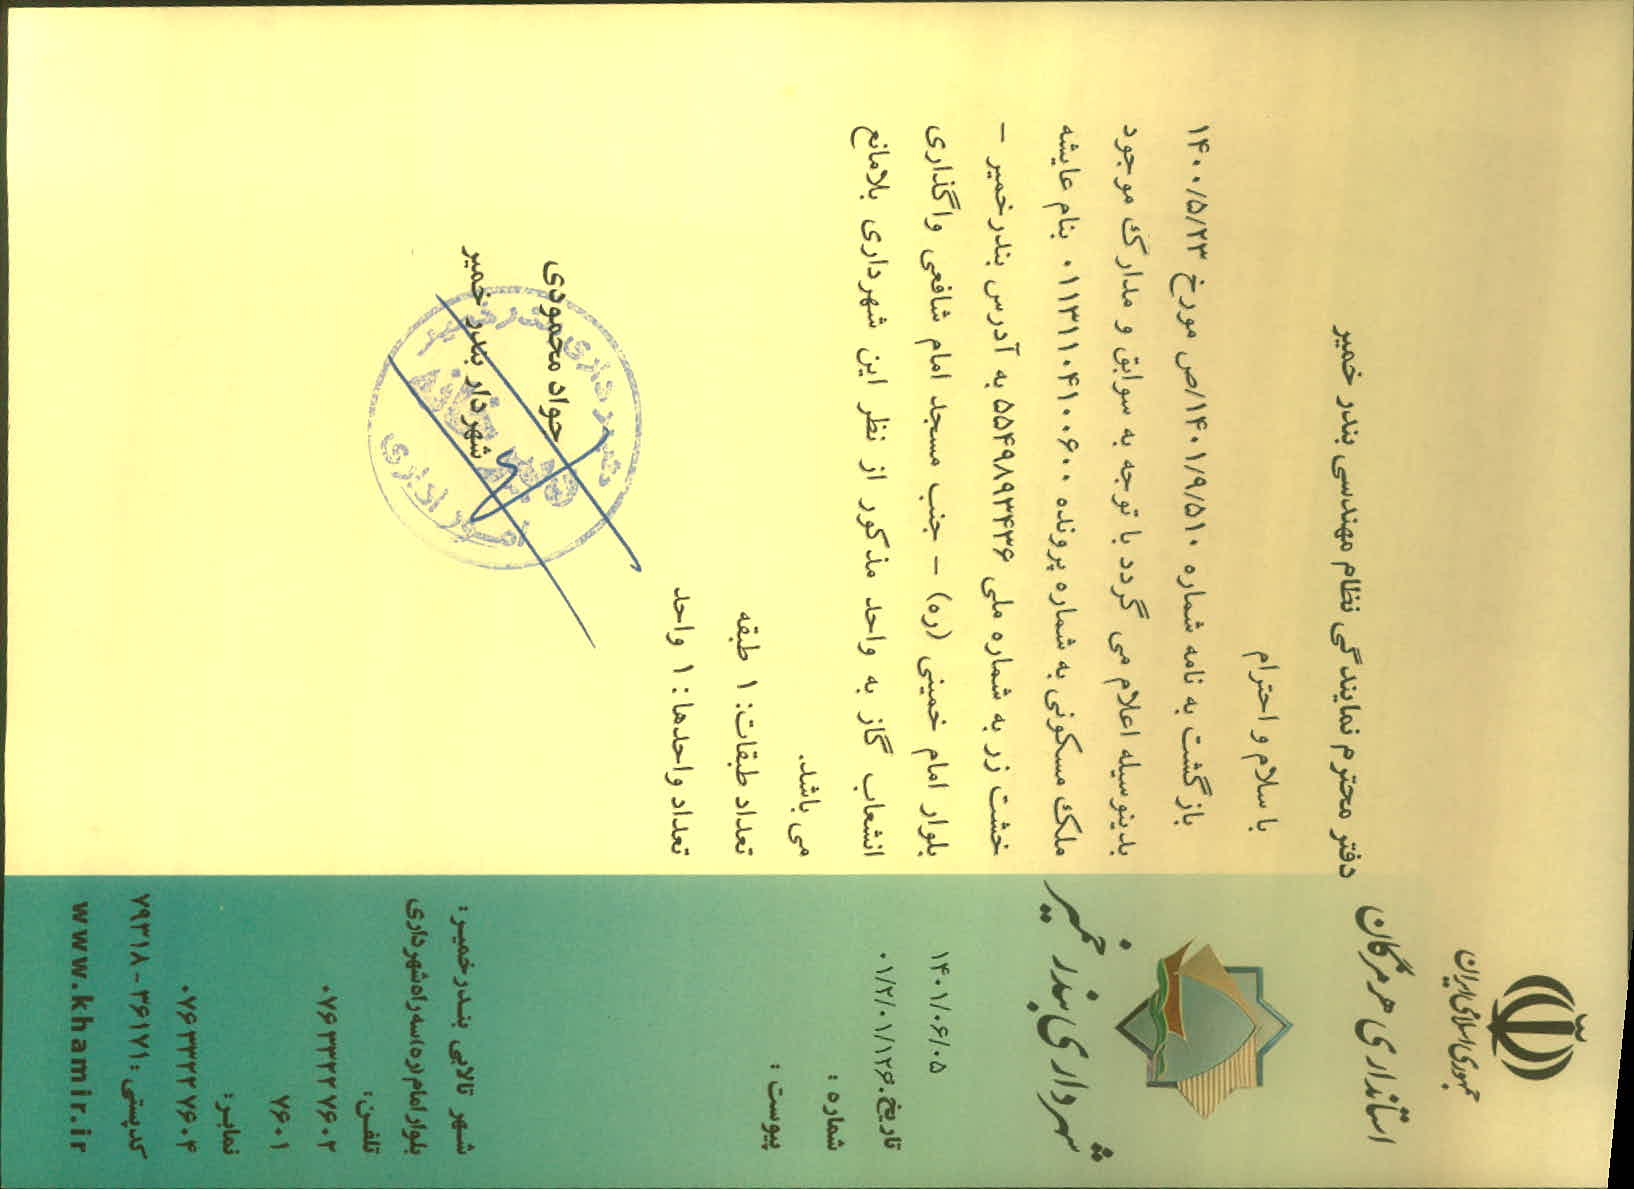 جمهوری اسلامی ایران
استانداری هرمزگان
شهرداری بندر خمیر
۱۴۰۱/۰۶/۰۵
تاریخ: ۰۱/۲/۰۱/۱۲۶
شماره :
پیوست :
دفتر محترم نمایندگی نظام مهندسی بندر خمیر
با سلام و احترام
بازگشت به نامه شماره ۱۴۰۱/۹/۵۱۰/ص مورخ ۱۴۰۰/۵/۲۳
بدینوسیله اعلام می گردد با توجه به سوابق و مدارک موجود
ملک مسکونی به شماره پرونده ۰۱۱۳۱۱۰۴۱۰۰۶۰۰ بنام عایشه
خشت زر به شماره ملی ۵۵۴۹۸۹۳۴۳۶ به آدرس بندر خمیر -
بلوار امام خمینی (ره) - جنب مسجد امام شافعی واگذاری
انشعاب گاز به واحد مذکور از نظر این شهرداری بلامانع
می باشد.
تعداد طبقات: ۱ طبقه
تعداد واحدها: ۱ واحد
جواد محمودی
شهردار بندر خمیر
شهرداری بندر خمیر
امور اداری
شهر تالابی بندرخمیر:
بلوار امام (ره) سه راه شهرداری
تلفن:
۰۷۶۳۳۲۲۷۶۰۲
۷۶۰۱
نمابر:
۰۷۶۳۳۲۲۷۶۰۴
کدپستی: ۳۶۱۷۱-۷۹۳۱۸
www.khamir.ir